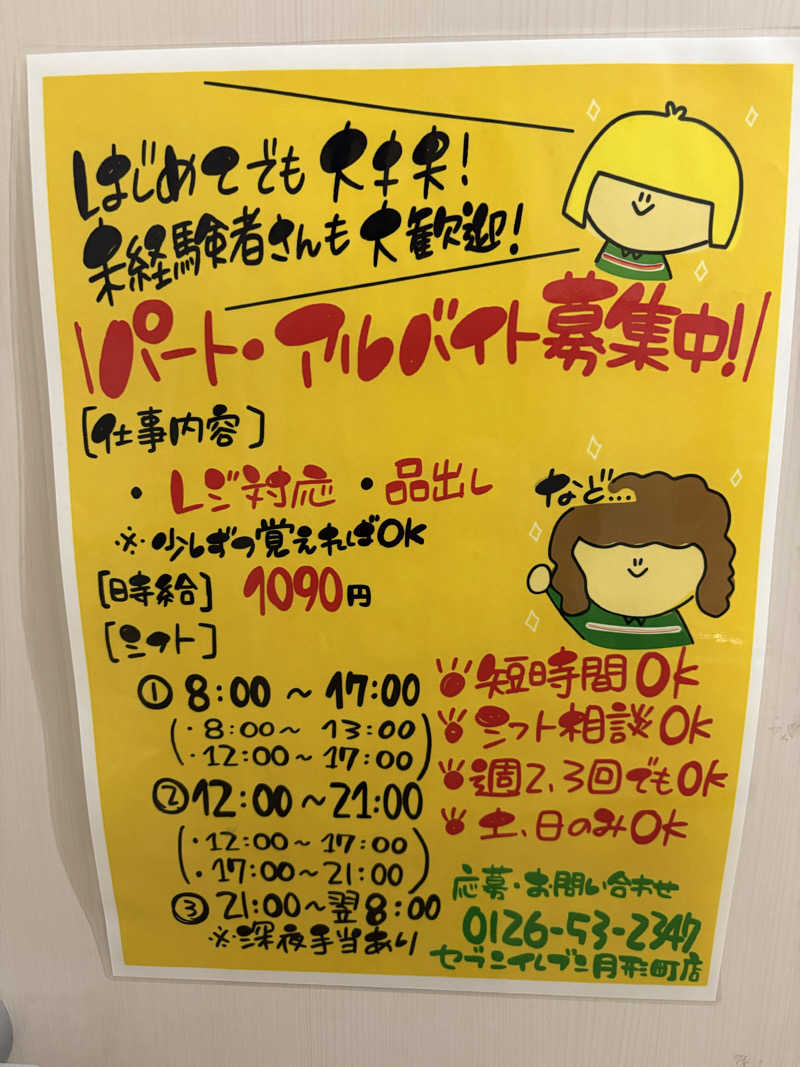 はじめてでも大丈夫!
未経験者さんも大歓迎!
\パート・アルバイト募集中!/
[仕事内容]
・レジ対応 ・品出し など...
※少しずつ覚えればOK
[時給] 1090円
[シフト]
① 8:00 ~ 17:00
(・8:00~ 13:00
・12:00 ~ 17:00)
② 12:00 ~ 21:00
(・12:00 ~ 17:00
・17:00 ~ 21:00)
③ 21:00 ~ 翌8:00
※深夜手当あり
短時間OK
シフト相談OK
週2、3回でもOK
土、日のみOK
応募・お問い合わせ
0126-53-2347
セブンイレブン月形町店